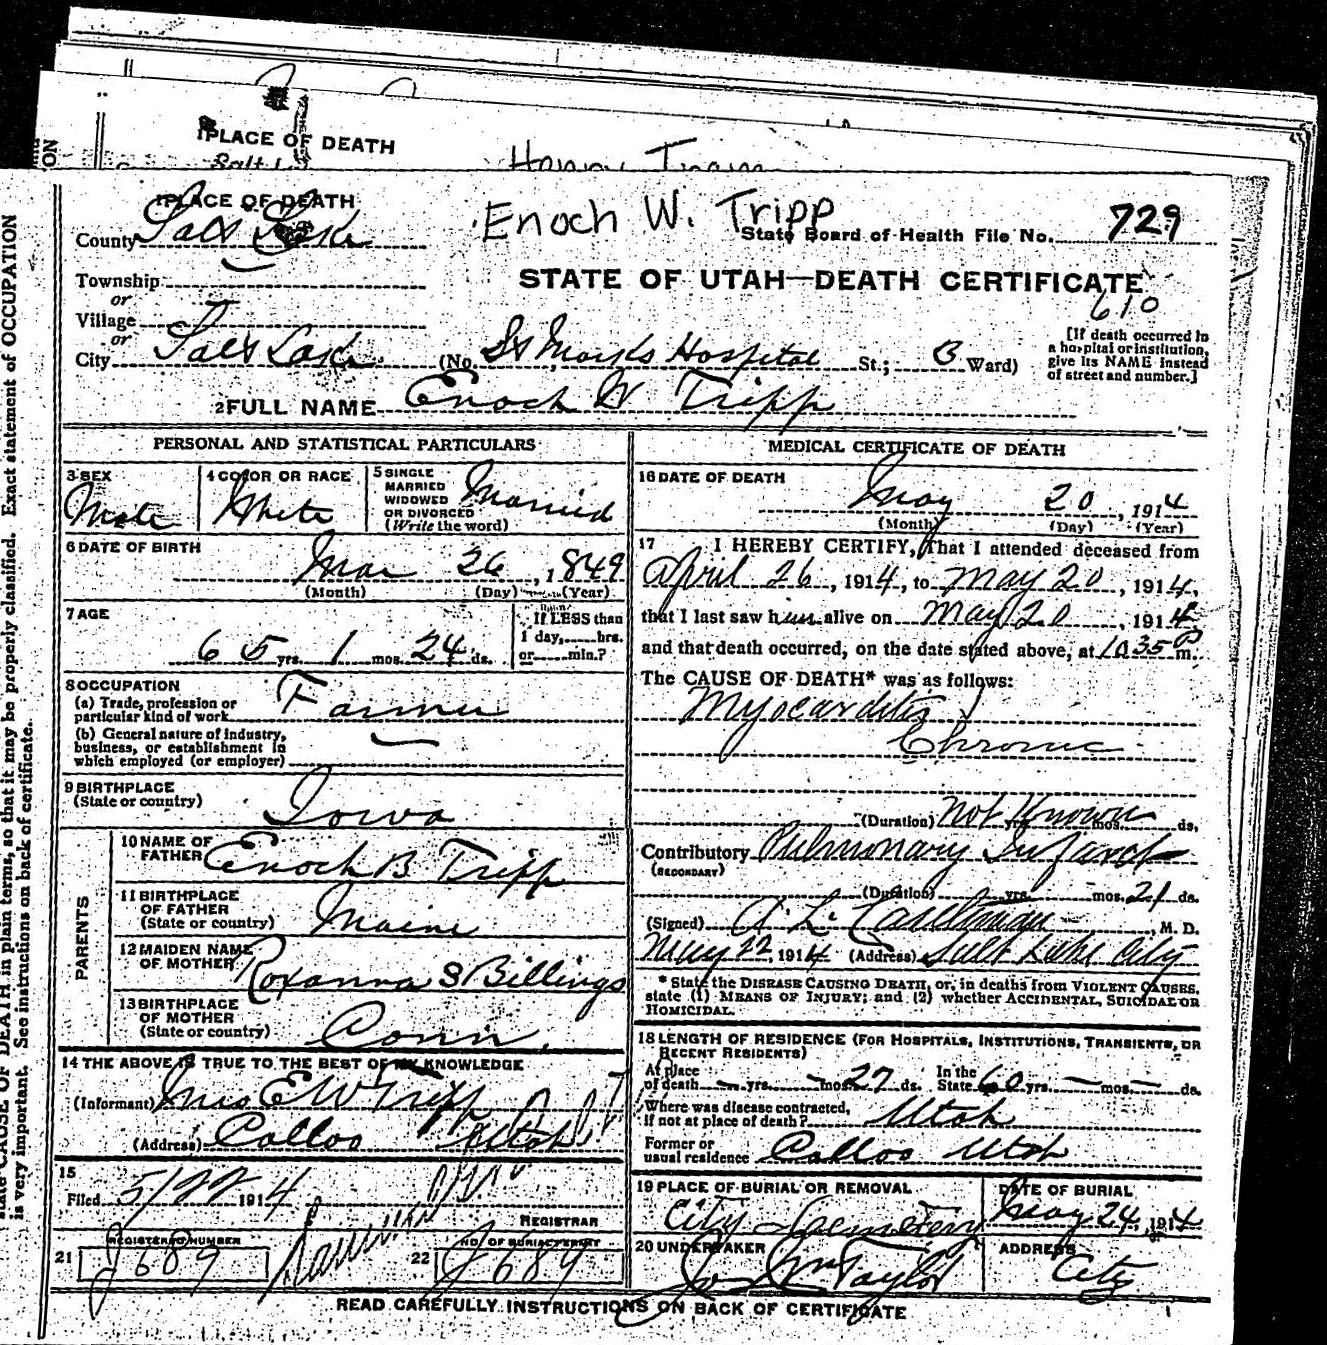 1 PLACE OF DEATH
Salt L
Henry Tram
ON
State CAUSE OF DEATH in plain terms, so that it may be properly classified. Exact statement of OCCUPATION
is very important. See instructions on back of certificate.
1 PLACE OF DEATH
County Salt Lake
Enoch W. Tripp
State Board of Health File No. 729
Township
or
Village
or
City Salt Lake
STATE OF UTAH—DEATH CERTIFICATE
610
(No. St Marks Hospital St.; B Ward)
[If death occurred in
a hospital or institution,
give its NAME instead
of street and number.]
2 FULL NAME Enoch W Tripp
PERSONAL AND STATISTICAL PARTICULARS
3 SEX
Male
4 COLOR OR RACE
White
5 SINGLE
MARRIED
WIDOWED
OR DIVORCED
(Write the word)
Married
6 DATE OF BIRTH
Mar 26, 1849
(Month) (Day) (Year)
7 AGE
65 yrs. 1 mos. 24 ds.
If LESS than
1 day, hrs.
or min.?
8 OCCUPATION
(a) Trade, profession or
particular kind of work Farmer
(b) General nature of industry,
business, or establishment in
which employed (or employer)
9 BIRTHPLACE
(State or country)
Iowa
PARENTS
10 NAME OF
FATHER Enoch B Tripp
11 BIRTHPLACE
OF FATHER
(State or country) Maine
12 MAIDEN NAME
OF MOTHER Roxanna S Billings
13 BIRTHPLACE
OF MOTHER
(State or country) Conn.
14 THE ABOVE IS TRUE TO THE BEST OF MY KNOWLEDGE
(Informant) Mrs E W Tripp
(Address) Calloo Utah
15
Filed 5/22 1914
REGISTRAR
21
REGISTERED NUMBER
J 689
22
NO. OF BURIAL PERMIT
J 689
MEDICAL CERTIFICATE OF DEATH
16 DATE OF DEATH
May 20, 1914
(Month) (Day) (Year)
17 I HEREBY CERTIFY, That I attended deceased from
April 26, 1914, to May 20, 1914,
that I last saw him alive on May 20, 1914
and that death occurred, on the date stated above, at 10 35 P m.
The CAUSE OF DEATH* was as follows:
Myocarditis
Chronic
(Duration) Not Known yrs. mos. ds.
Contributory Pulmonary Infarct
(SECONDARY)
(Duration) yrs. mos. 21 ds.
(Signed) A. L. Castleman, M. D.
May 22, 1914 (Address) Salt Lake City
* State the DISEASE CAUSING DEATH, or, in deaths from VIOLENT CAUSES,
state (1) MEANS OF INJURY; and (2) whether ACCIDENTAL, SUICIDAL OR
HOMICIDAL.
18 LENGTH OF RESIDENCE (FOR HOSPITALS, INSTITUTIONS, TRANSIENTS, OR
RECENT RESIDENTS)
At place
of death — yrs. — mos. 27 ds. In the
State 60 yrs. — mos. — ds.
Where was disease contracted,
if not at place of death? Utah
Former or
usual residence Calloo Utah
19 PLACE OF BURIAL OR REMOVAL
City Cemetery
DATE OF BURIAL
May 24, 1914
20 UNDERTAKER
Jos Wm Taylor
ADDRESS
City
READ CAREFULLY INSTRUCTIONS ON BACK OF CERTIFICATE